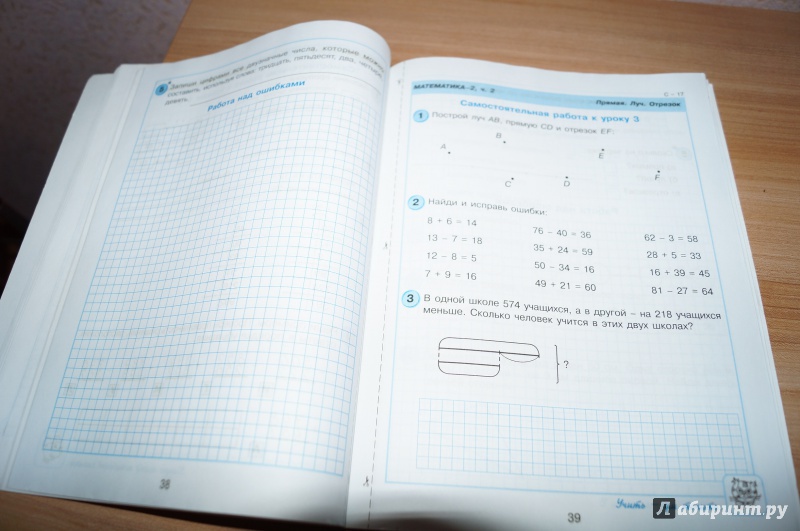 8 Запиши цифрами все двузначные числа, которые можно
составить, используя слова: тридцать, пятьдесят, два, четыре,
девять.
Работа над ошибками
38
МАТЕМАТИКА–2, ч. 2
С – 17
Прямая. Луч. Отрезок
Самостоятельная работа к уроку 3
1 Построй луч AB, прямую CD и отрезок EF:
A B C D E F
2 Найди и исправь ошибки:
8 + 6 = 14 76 – 40 = 36 62 – 3 = 58
13 – 7 = 18 35 + 24 = 59 28 + 5 = 33
12 – 8 = 5 50 – 34 = 16 16 + 39 = 45
7 + 9 = 16 49 + 21 = 60 81 – 27 = 64
3 В одной школе 574 учащихся, а в другой – на 218 учащихся
меньше. Сколько человек учится в этих двух школах?
?
39
Учить
Лабиринт.ру